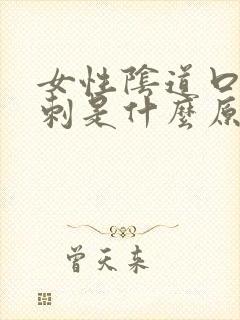 女性陰道口
刺是什麼原
曾天来